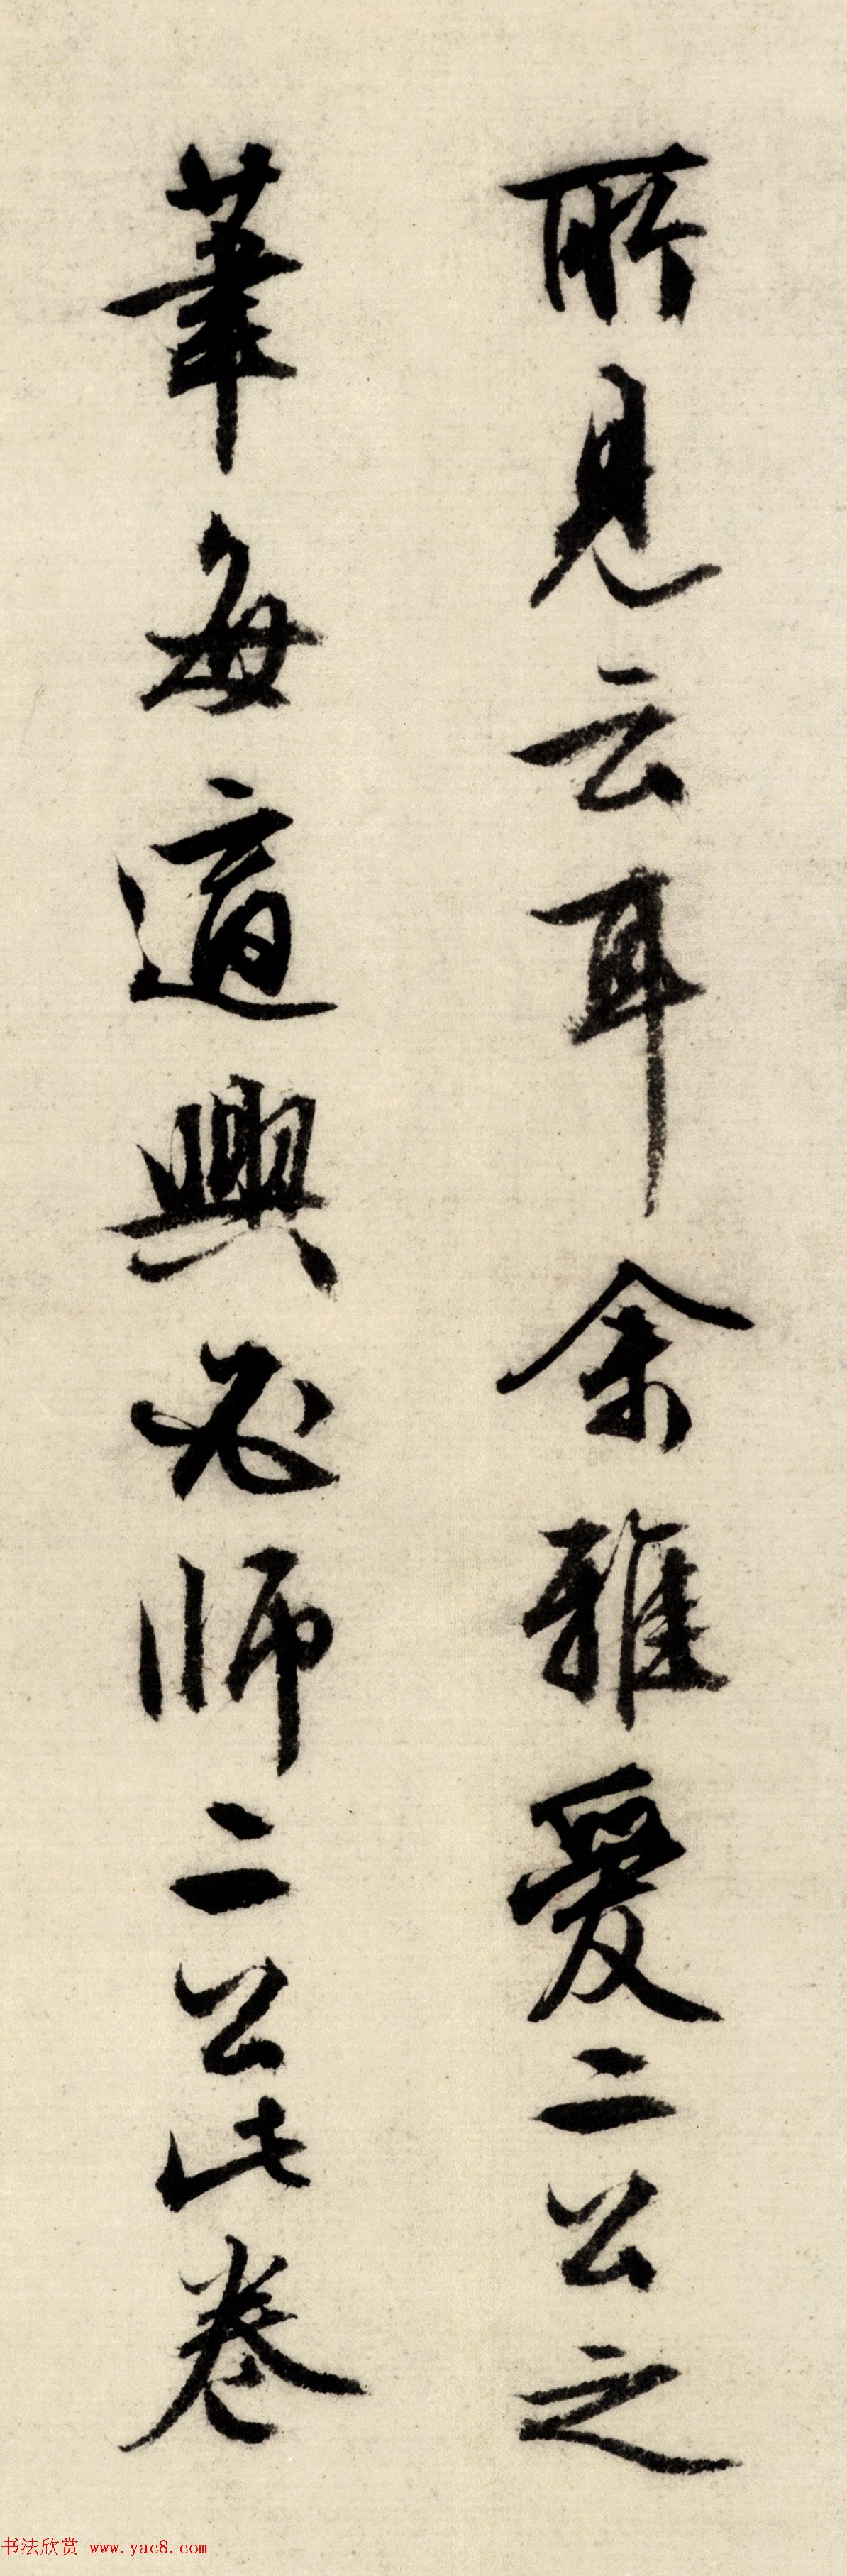 所見云耳余雅愛二公之
筆每適興必師二公此卷
书法欣赏 www.yac8.com